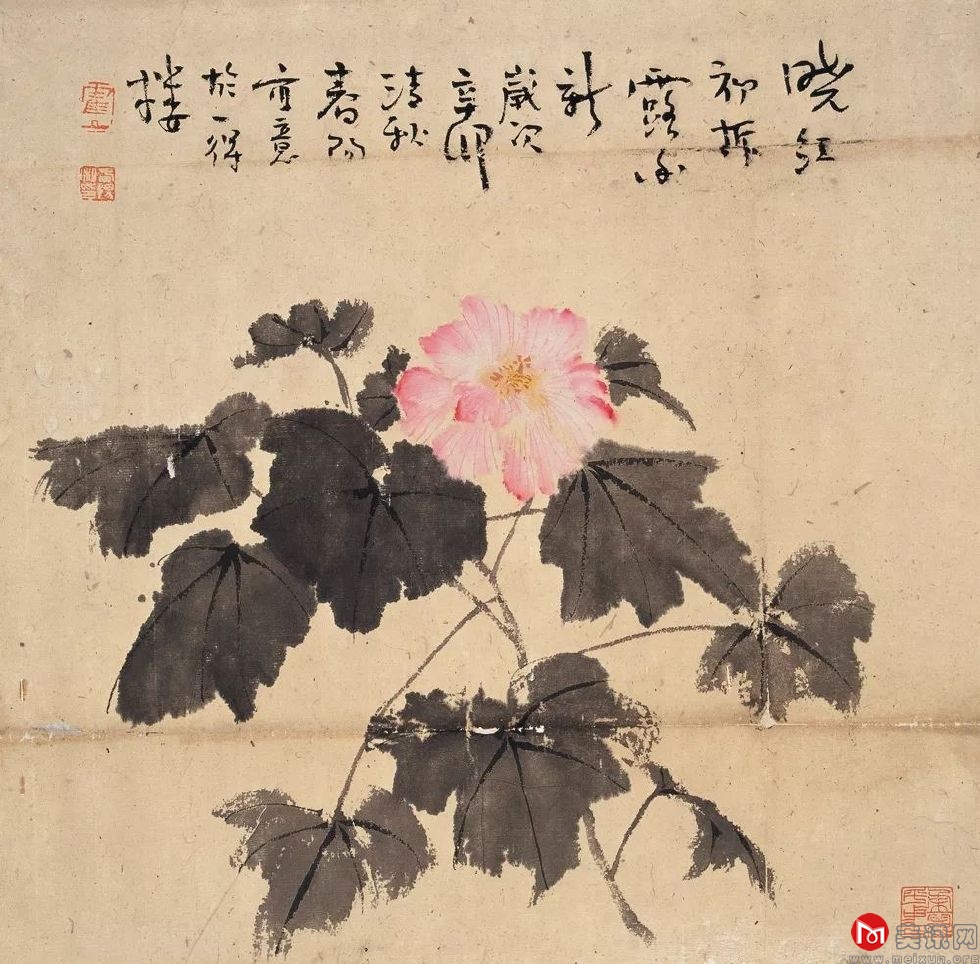 曉紅
初拆
露香
新
歲次
辛卯
清秋
春陽
寫意
於一得
樓
美讯网
www.meixun.org